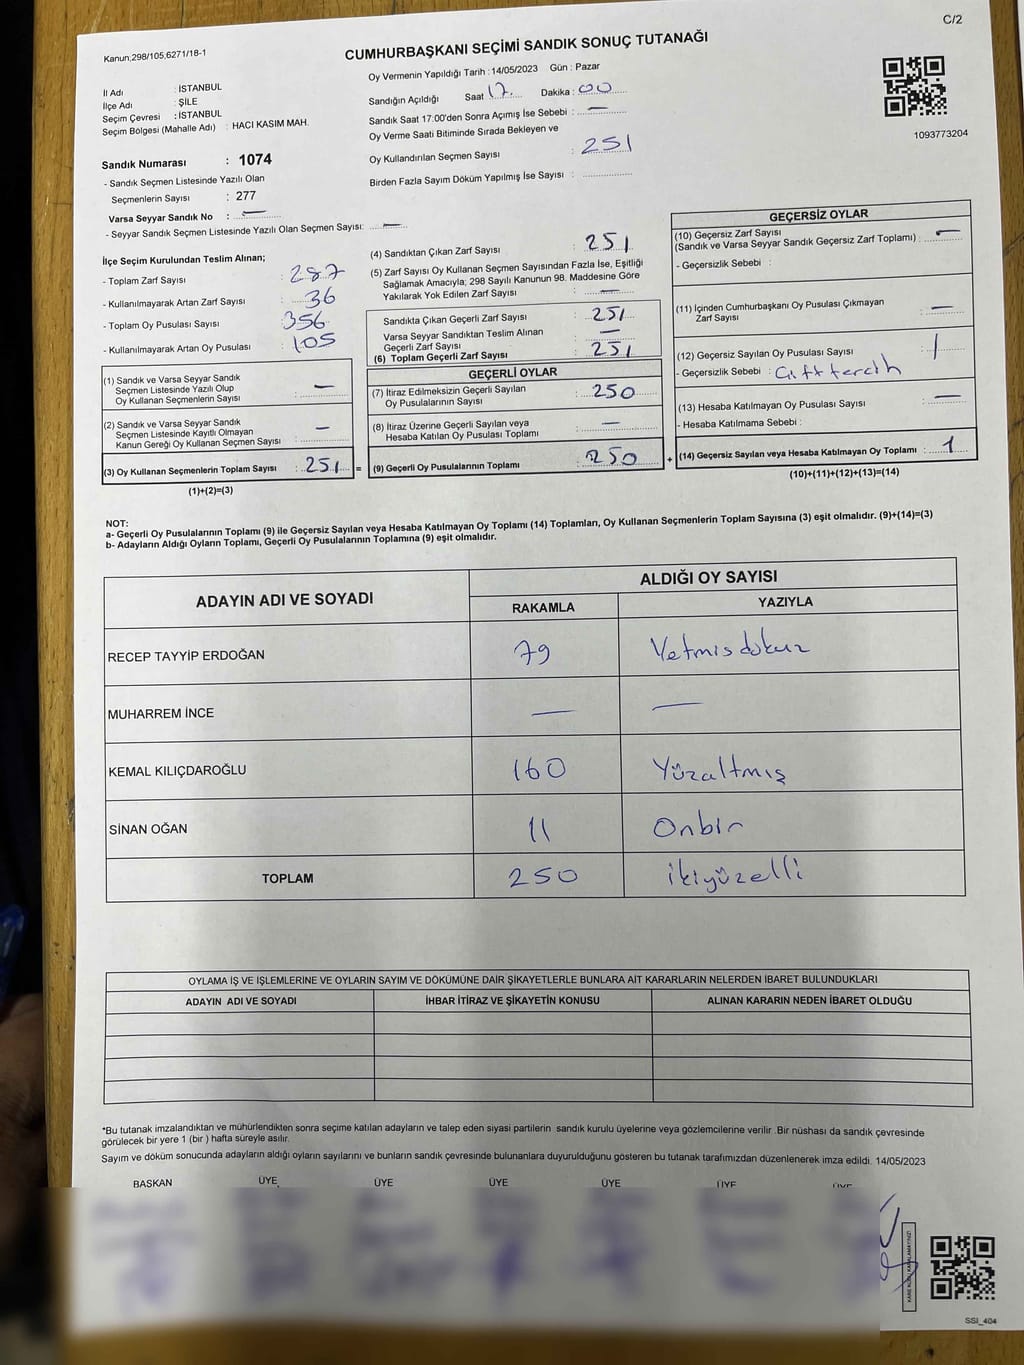 C/2
Kanun;298/105;6271/18-1
CUMHURBAŞKANI SEÇİMİ SANDIK SONUÇ TUTANAĞI
Oy Vermenin Yapıldığı Tarih : 14/05/2023 Gün : Pazar
İl Adı : İSTANBUL
İlçe Adı : ŞİLE
Seçim Çevresi : İSTANBUL
Seçim Bölgesi (Mahalle Adı) : HACI KASIM MAH.
Sandığın Açıldığı Saat 17. Dakika : 00
Sandık Saat 17:00'den Sonra Açımış İse Sebebi : —
Oy Verme Saati Bitiminde Sırada Bekleyen ve
Oy Kullandırılan Seçmen Sayısı : 251
Birden Fazla Sayım Döküm Yapılmış İse Sayısı :
1093773204
Sandık Numarası : 1074
- Sandık Seçmen Listesinde Yazılı Olan
Seçmenlerin Sayısı : 277
Varsa Seyyar Sandık No : —
- Seyyar Sandık Seçmen Listesinde Yazılı Olan Seçmen Sayısı: —
İlçe Seçim Kurulundan Teslim Alınan;
- Toplam Zarf Sayısı : 287
- Kullanılmayarak Artan Zarf Sayısı : 36
- Toplam Oy Pusulası Sayısı : 356
- Kullanılmayarak Artan Oy Pusulası : 105
(1) Sandık ve Varsa Seyyar Sandık
Seçmen Listesinde Yazılı Olup
Oy Kullanan Seçmenlerin Sayısı : —
(2) Sandık ve Varsa Seyyar Sandık
Seçmen Listesinde Kayıtlı Olmayan
Kanun Gereği Oy Kullanan Seçmen Sayısı : —
(3) Oy Kullanan Seçmenlerin Toplam Sayısı : 251 =
(1)+(2)=(3)
(4) Sandıktan Çıkan Zarf Sayısı : 251
(5) Zarf Sayısı Oy Kullanan Seçmen Sayısından Fazla İse, Eşitliği
Sağlamak Amacıyla; 298 Sayılı Kanunun 98. Maddesine Göre
Yakılarak Yok Edilen Zarf Sayısı : —
Sandıkta Çıkan Geçerli Zarf Sayısı : 251
Varsa Seyyar Sandıktan Teslim Alınan
Geçerli Zarf Sayısı : —
(6) Toplam Geçerli Zarf Sayısı : 251
GEÇERLİ OYLAR
(7) İtiraz Edilmeksizin Geçerli Sayılan
Oy Pusulalarının Sayısı : 250
(8) İtiraz Üzerine Geçerli Sayılan veya
Hesaba Katılan Oy Pusulası Toplamı : —
(9) Geçerli Oy Pusulalarının Toplamı : 250 +
GEÇERSİZ OYLAR
(10) Geçersiz Zarf Sayısı
(Sandık ve Varsa Seyyar Sandık Geçersiz Zarf Toplamı) : —
- Geçersizlik Sebebi :
(11) İçinden Cumhurbaşkanı Oy Pusulası Çıkmayan
Zarf Sayısı : —
(12) Geçersiz Sayılan Oy Pusulası Sayısı : 1
- Geçersizlik Sebebi : Çift tercih
(13) Hesaba Katılmayan Oy Pusulası Sayısı : —
- Hesaba Katılmama Sebebi :
(14) Geçersiz Sayılan veya Hesaba Katılmayan Oy Toplamı : 1
(10)+(11)+(12)+(13)=(14)
NOT:
a- Geçerli Oy Pusulalarının Toplamı (9) ile Geçersiz Sayılan veya Hesaba Katılmayan Oy Toplamı (14) Toplamları, Oy Kullanan Seçmenlerin Toplam Sayısına (3) eşit olmalıdır. (9)+(14)=(3)
b- Adayların Aldığı Oyların Toplamı, Geçerli Oy Pusulalarının Toplamına (9) eşit olmalıdır.
ADAYIN ADI VE SOYADI
ALDIĞI OY SAYISI
RAKAMLA YAZIYLA
RECEP TAYYİP ERDOĞAN 79 Yetmişdokuz
MUHARREM İNCE — —
KEMAL KILIÇDAROĞLU 160 Yüzaltmış
SİNAN OĞAN 11 Onbir
TOPLAM 250 ikiyüzelli
OYLAMA İŞ VE İŞLEMLERİNE VE OYLARIN SAYIM VE DÖKÜMÜNE DAİR ŞİKAYETLERLE BUNLARA AİT KARARLARIN NELERDEN İBARET BULUNDUKLARI
ADAYIN ADI VE SOYADI İHBAR İTİRAZ VE ŞİKAYETİN KONUSU ALINAN KARARIN NEDEN İBARET OLDUĞU
*Bu tutanak imzalandıktan ve mühürlendikten sonra seçime katılan adayların ve talep eden siyasi partilerin sandık kurulu üyelerine veya gözlemcilerine verilir .Bir nüshası da sandık çevresinde
görülecek bir yere 1 (bir ) hafta süreyle asılır.
Sayım ve döküm sonucunda adayların aldığı oyların sayılarını ve bunların sandık çevresinde bulunanlara duyurulduğunu gösteren bu tutanak tarafımızdan düzenlenerek imza edildi. 14/05/2023
BAŞKAN ÜYE ÜYE ÜYE ÜYE ÜYE ÜYE
SSI_404